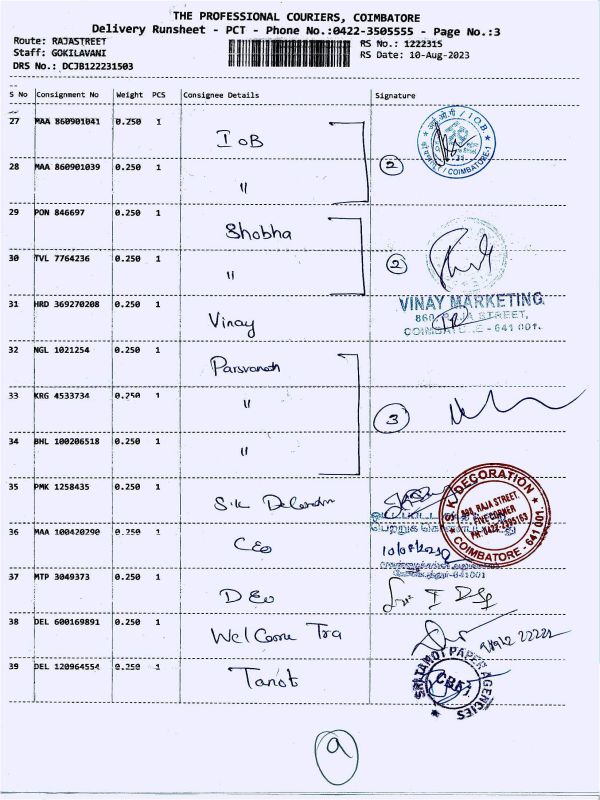 THE PROFESSIONAL COURIERS, COIMBATORE
Delivery Runsheet - PCT - Phone No.:0422-3505555 - Page No.:3
Route: RAJASTREET
Staff: GOKILAVANI
DRS No.: DCJB122231503
RS No.: 1222315
RS Date: 10-Aug-2023
S No Consignment No Weight PCS Consignee Details Signature
27 MAA 860901041 0.250 1 IOB
28 MAA 860901039 0.250 1 "
2
COIMBATORE-1
29 PON 846697 0.250 1 Shobha
30 TVL 7764236 0.250 1 "
2
31 HRD 369270208 0.250 1 Vinay
VINAY MARKETING
860, RAJA STREET,
COIMBATORE - 641 001.
32 NGL 1021254 0.250 1 Parsvanath
33 KRG 4533734 0.250 1 "
3
34 BHL 100206518 0.250 1 "
35 PMK 1258435 0.250 1 S.K
S.K DECORATION
RAJA STREET,
FIVE CORNER
COIMBATORE - 641 001.
36 MAA 100420290 0.250 1 CEO
37 MTP 3049373 0.250 1 DEO
38 DEL 600169891 0.250 1 Welcome Tra
39 DEL 120964554 0.250 1 Tanot
SRI TANOT PAPER AGENCIES
CBE
9